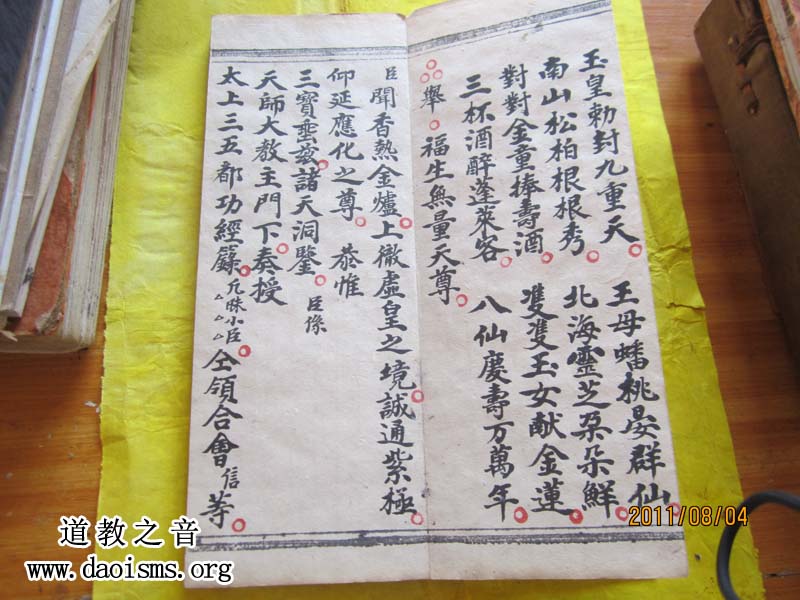 玉皇勅封九重天 王母蟠桃晏群仙
南山松柏根根秀 北海靈芝朶朵鮮
對對金童捧壽酒 雙雙玉女献金蓮
三杯酒醉蓬萊客 八仙慶壽万萬年
舉 福生無量天尊
臣聞香熱金爐上徹虛皇之境誠通紫極
仰延應化之尊 恭惟
三寳垂慈諸天洞鑒 臣係
天師大教主門下奏授
太上三五都功經籙凡昧小臣厶厶厶仝領合會信等
2011/08/04
道教之音
www.daoisms.org